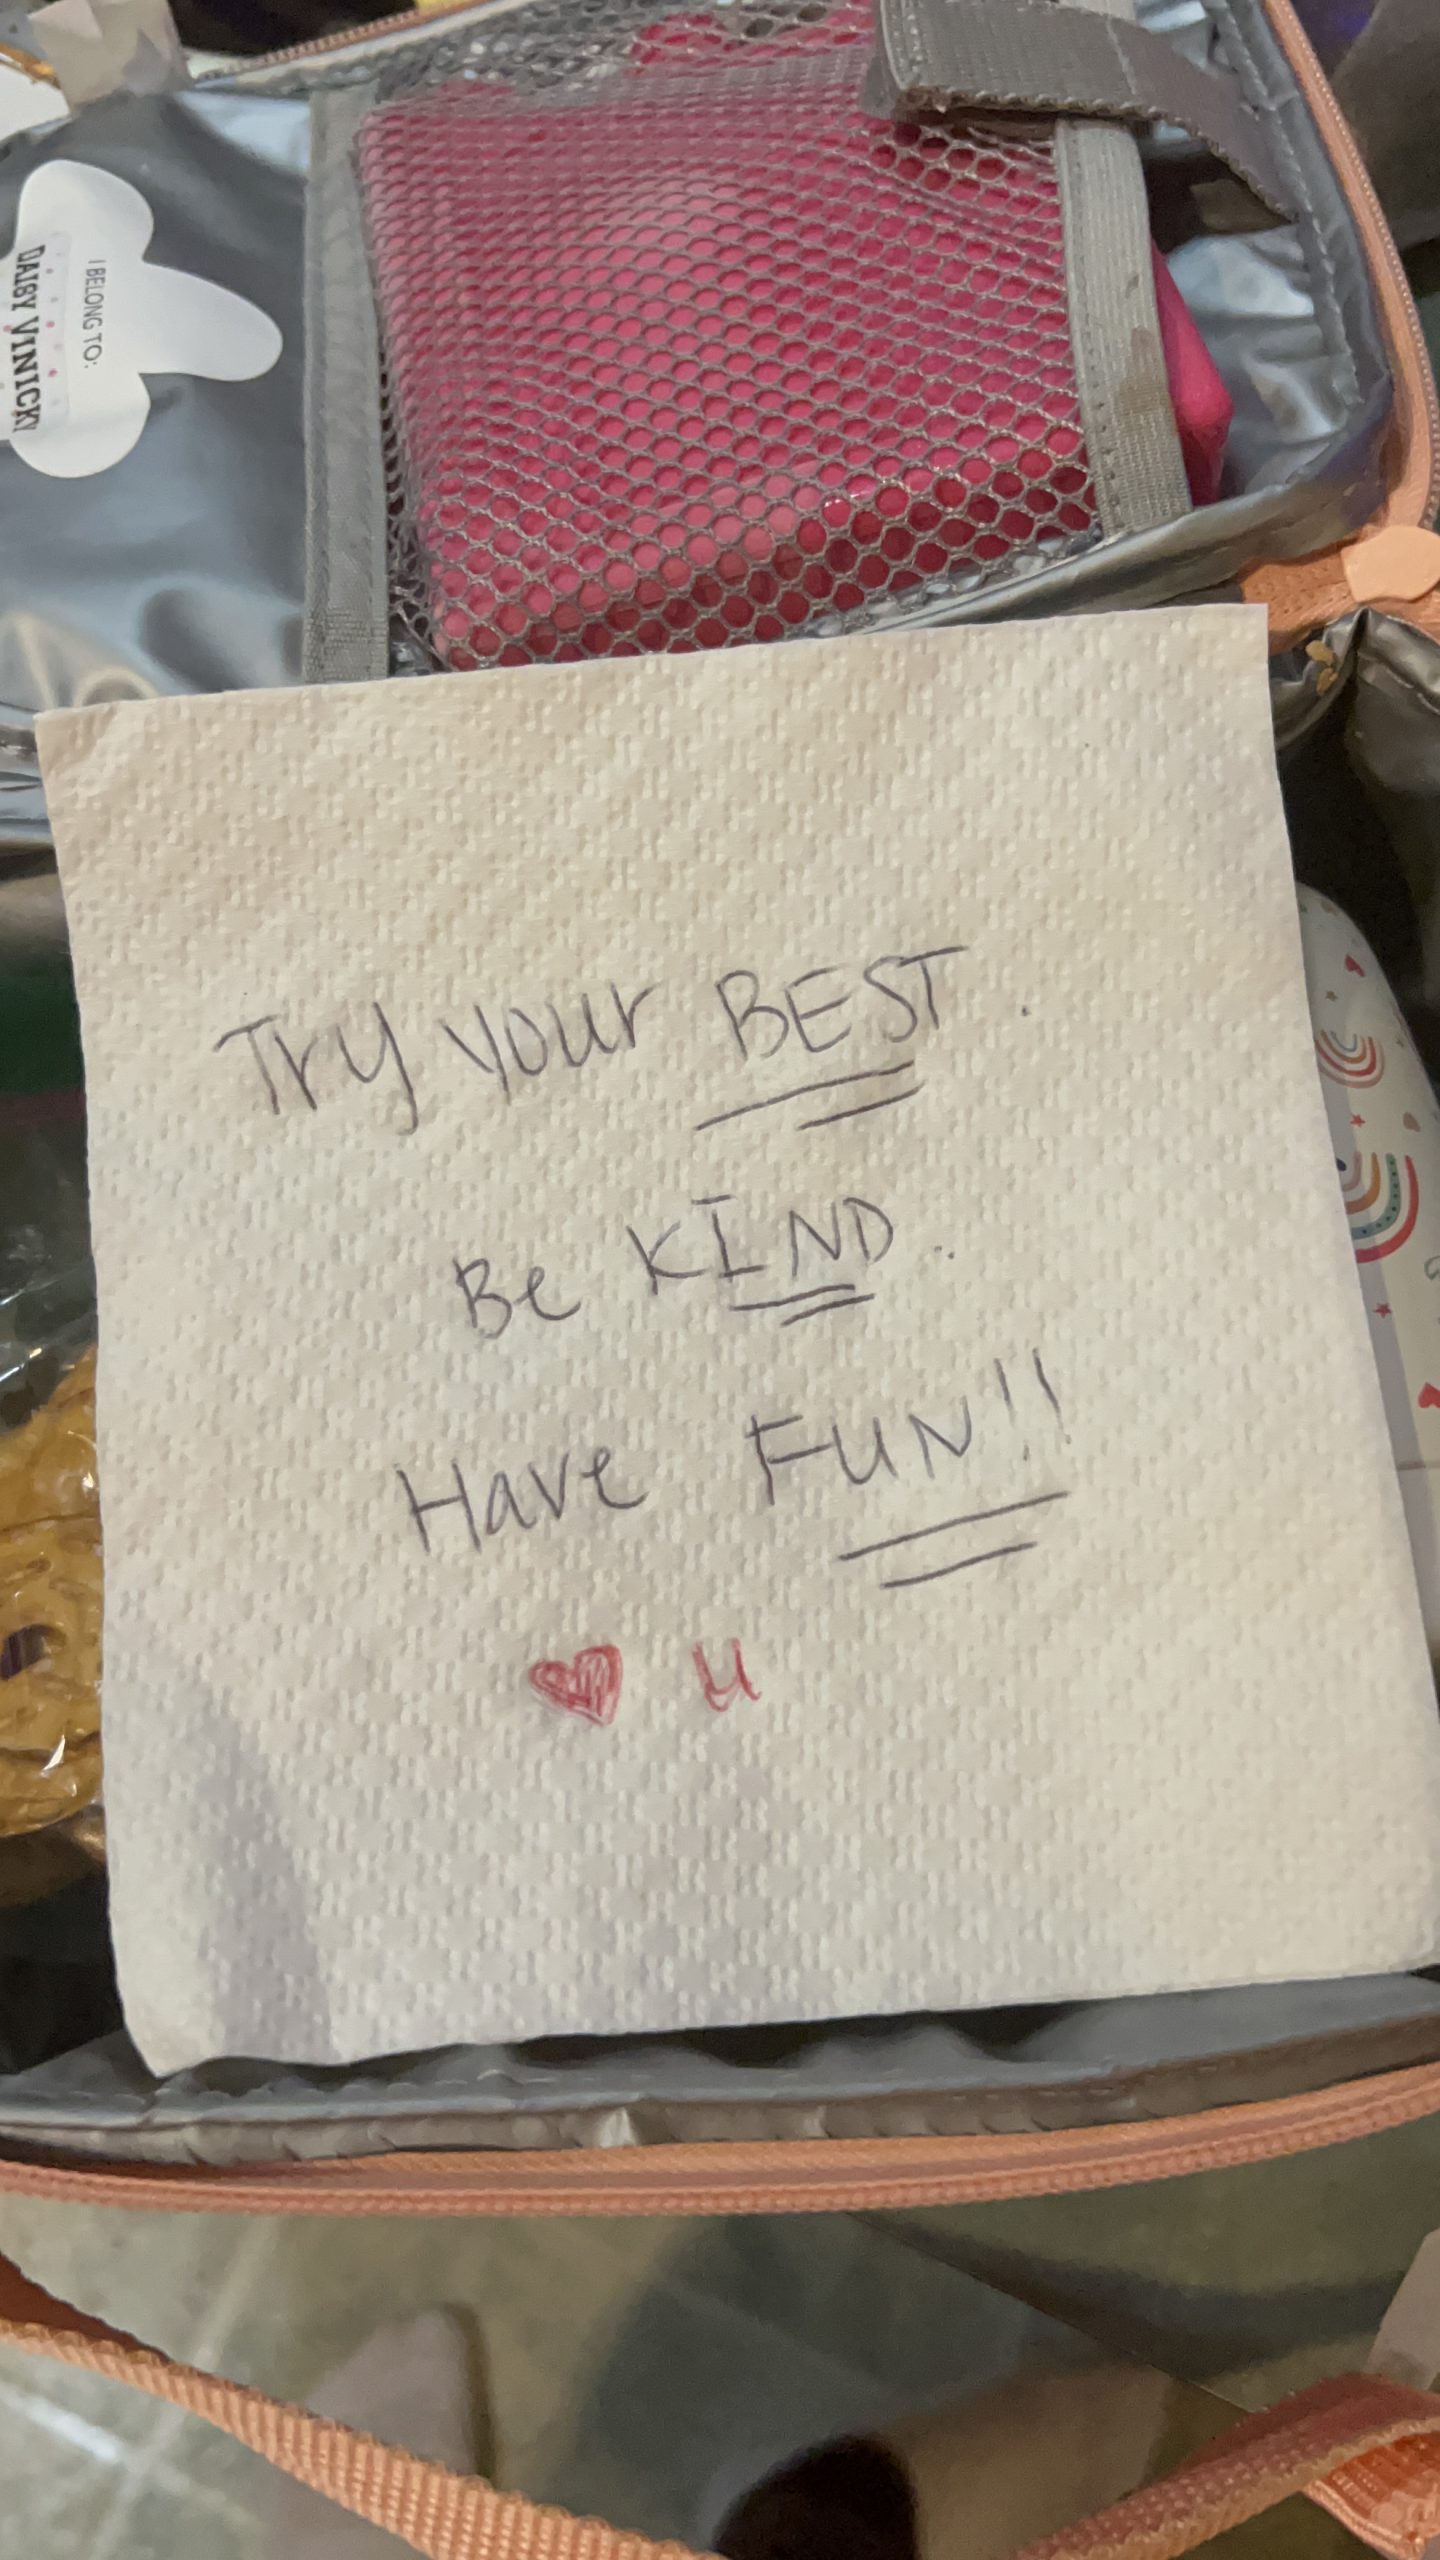 I BELONG TO:
DAISY VINICKY
Try your BEST.
Be KIND.
Have FUN!!
♥ u